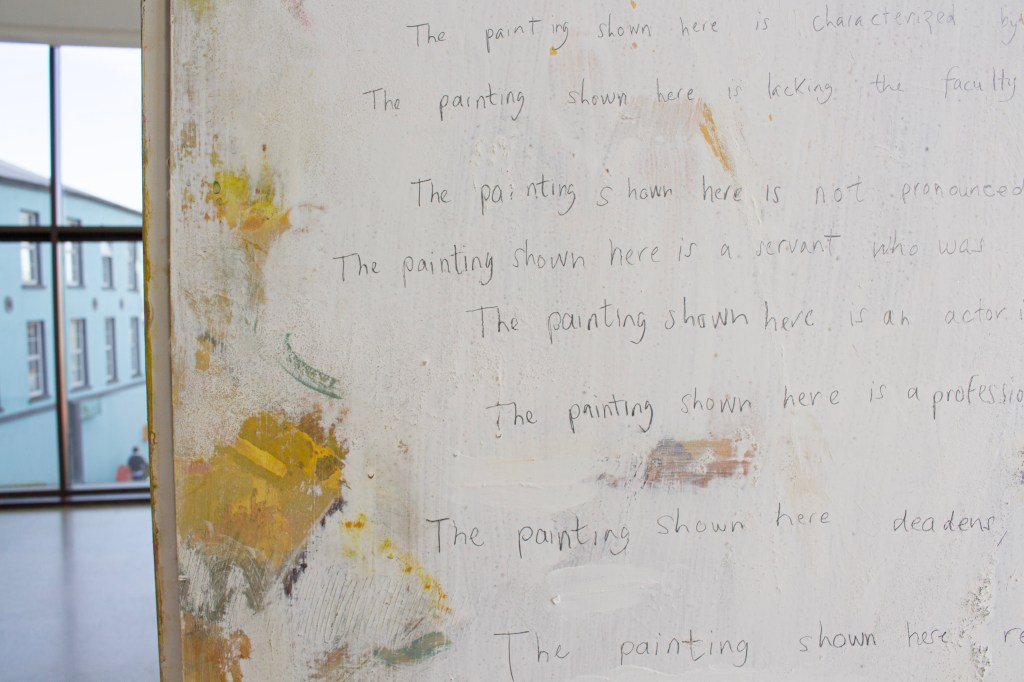 The painting shown here is characterized by
The painting shown here is lacking the faculty
The painting shown here is not pronounced
The painting shown here is a servant who was
The painting shown here is an actor
The painting shown here is a
The painting shown here deadens,
The painting shown here